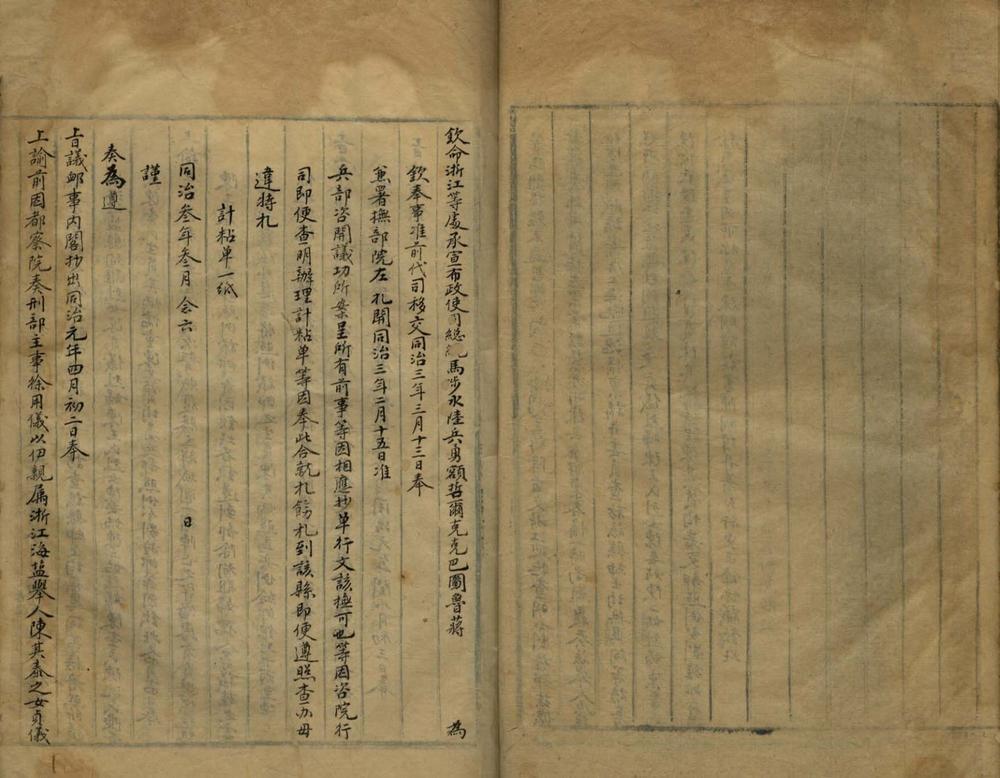 欽命浙江等處承宣布政使司總 馬步水陸兵勇額哲爾克克巴圖魯蔣 為
欽奉事准前代司移交同治三年三月十三日奉
兼署撫部院左 札開同治三年二月十五日准
兵部咨開議功所案呈所有前事等因相應抄单行文該撫可也等因咨院行
司即便查明辦理計粘单等因奉此合就札飭札到該縣即便遵照查办毋
違特札
計粘单一紙
同治叁年叁月 念六 日
謹
奏為遵
上旨議卹事内閣抄出同治元年四月初二日奉
上諭前因都察院奏刑部主事徐用儀以伊親屬浙江海盐舉人陳其泰之女貞儀